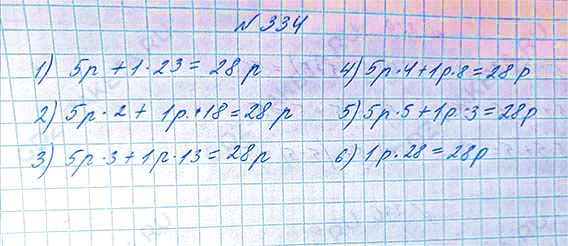 № 334
1) 5р + 1 · 23 = 28 р
2) 5р · 2 + 1р · 18 = 28 р
3) 5р · 3 + 1р · 13 = 28р
4) 5р · 4 + 1р · 8 = 28р
5) 5р · 5 + 1р · 3 = 28р
6) 1р · 28 = 28р